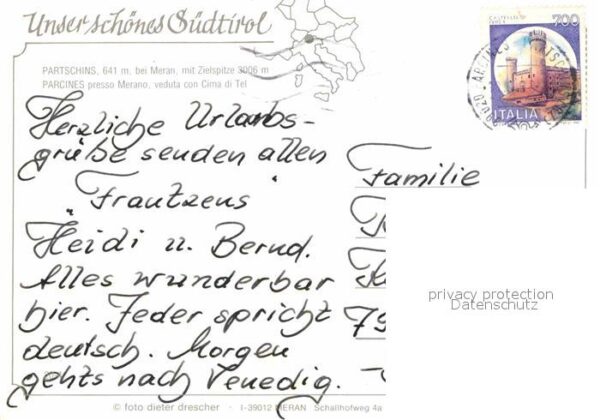 Unser schönes Südtirol
PARTSCHINS, 641 m, bei Meran, mit Zielspitze 3006 m
PARCINES presso Merano, veduta con Cima di Tel
700
ITALIA
Herzliche Urlaubs-
grüße senden allen
Frautzens
Heidi u. Bernd.
Alles wunderbar
hier. Jeder spricht
deutsch. Morgen
gehts nach Venedig.
Familie
79
privacy protection
Datenschutz
© foto dieter drescher - I-39012 MERAN Schallhofweg 4a